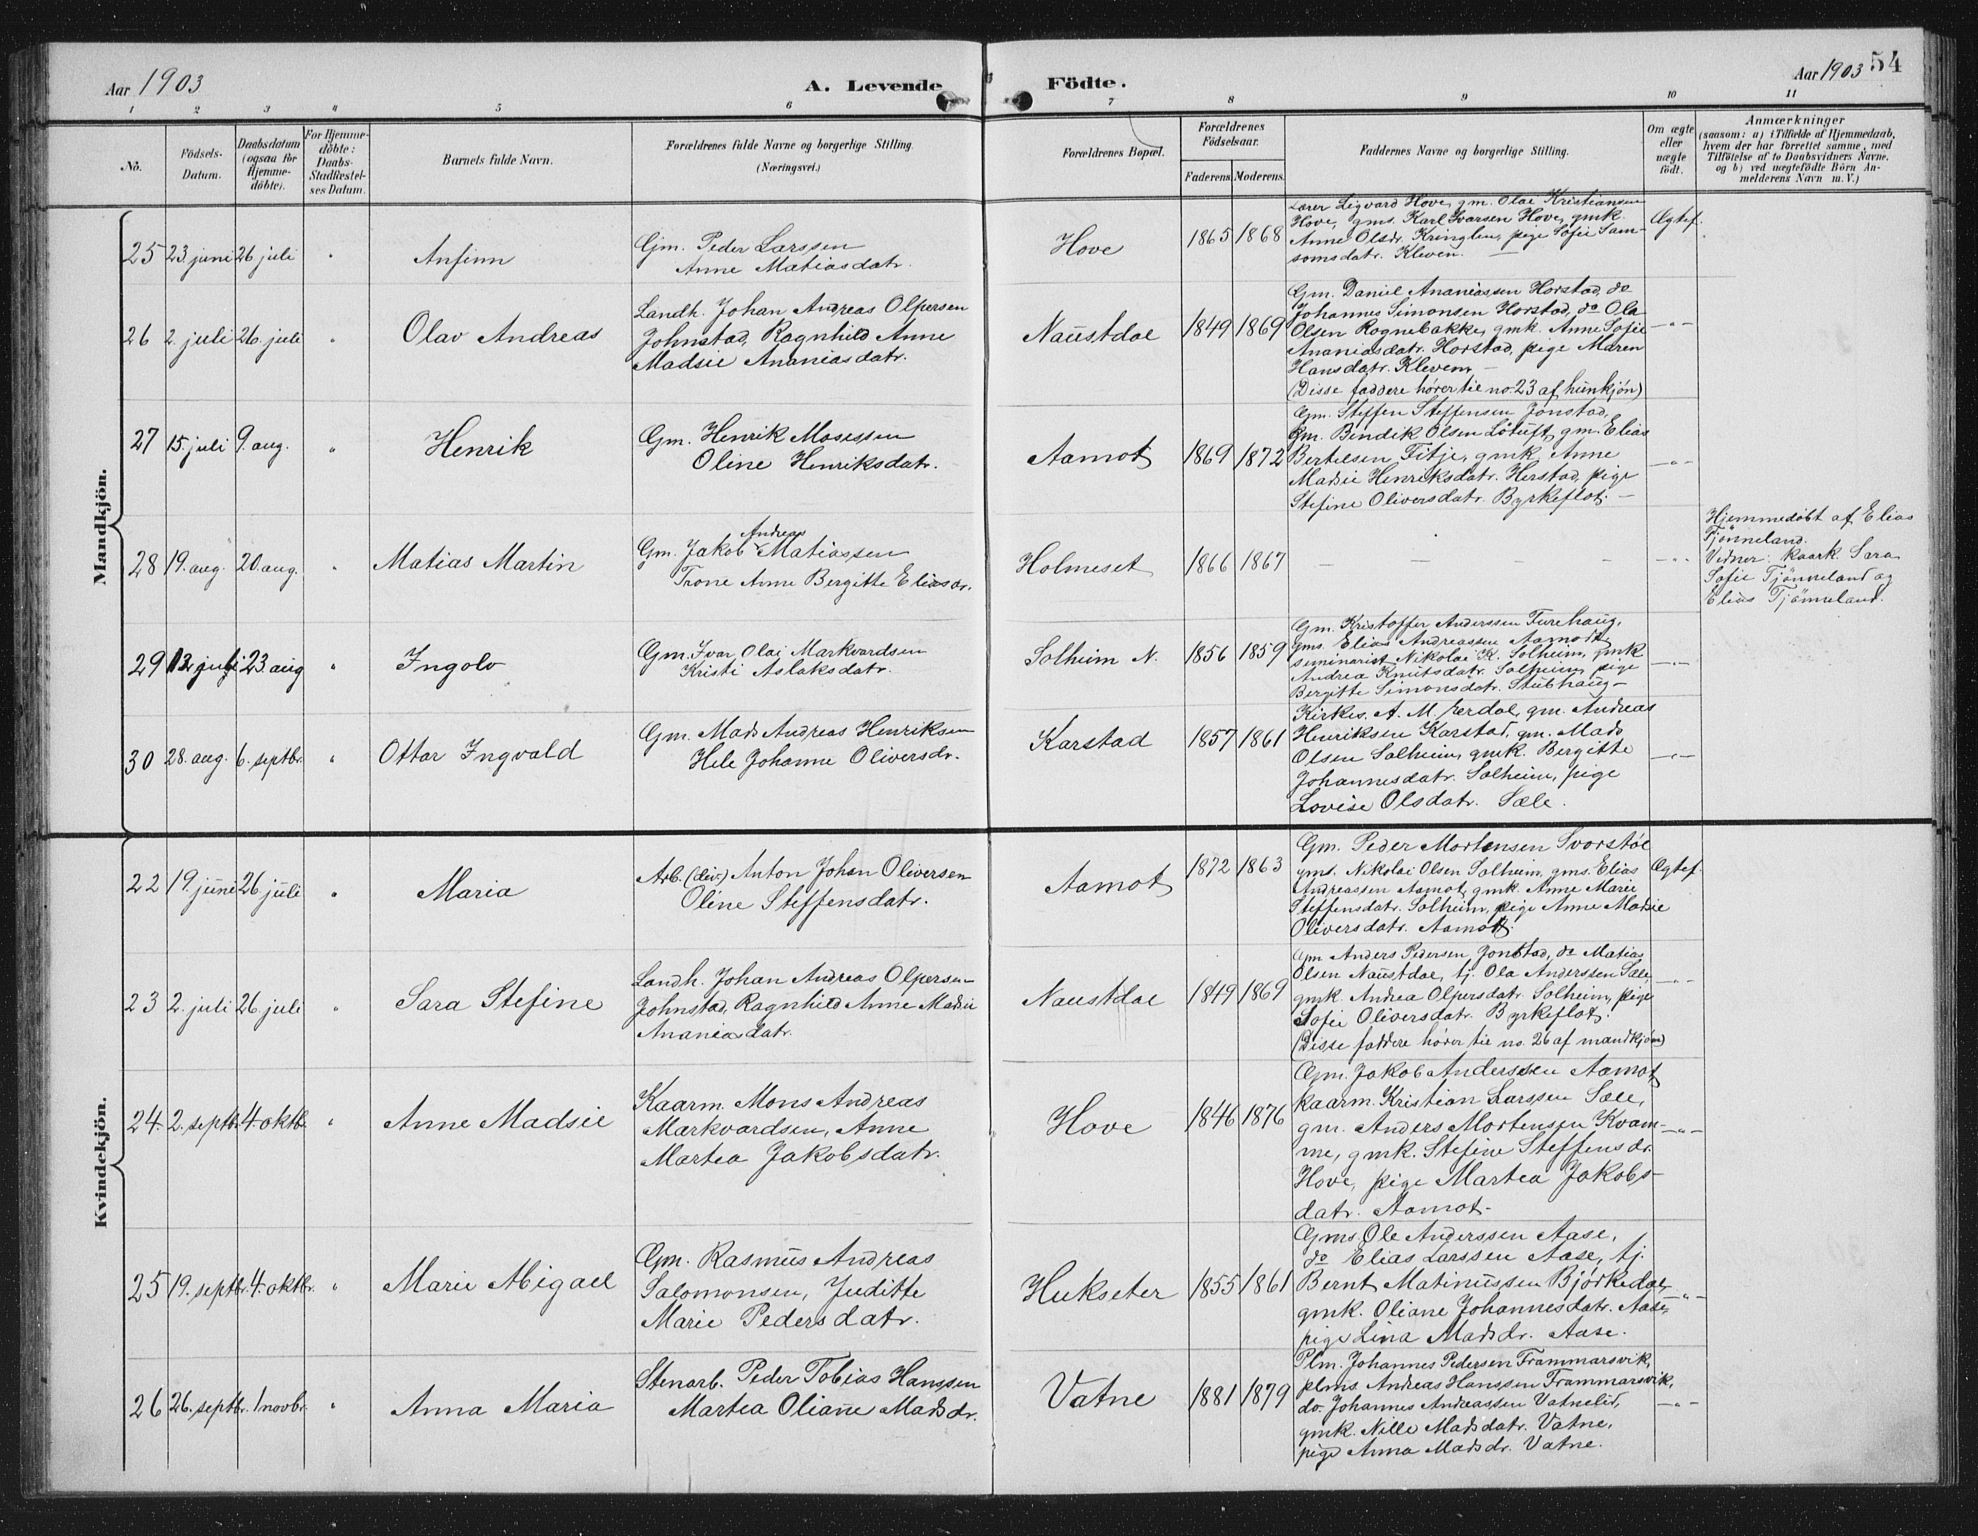 Aar 1903
A. Levende Födte.
Aar 1903 54
1 2 3 4 5 6 7 8 9 10 11
No.
Födsels-
Datum.
Daabsdatum
(ogsaa for
Hjemme-
döbte).
For Hjemme-
döbte:
Daabs-
Stadfæstel-
ses Datum.
Barnets fulde Navn.
Forældrenes fulde Navne og borgerlige Stilling.
(Næringsvei.)
Forældrenes Bopæl.
Forældrenes
Födselsaar.
Faderens. Moderens.
Faddernes Navne og borgerlige Stilling.
Om ægte
eller
uægte
födt.
Anmærkninger
(saasom: a) i Tilfælde af Hjemmedaab,
hvem der har forrettet samme, med
Tilföielse af to Daabsvidners Navne,
og b) ved uægtefödte Börn An-
melderens Navn m. V.)
Mandkjön.
25 23. juni 26 juli " Anfinn
Gm. Peder Larssen
Anne Matiasdatr.
Hove 1865 1868
Lærer Sigvard Hove, gm. Olai Kristiansen
Hove, gms. Karl Ivarsen Hove, gmk.
Anne Olsdr. Kringlen, pige Sofie Sam-
somsdatr. Kleven. —
Ægtef.
26 2. juli 26. juli " Olav Andreas
Landh. Johan Andreas Olpersen
Johnstad, Ragnhild Anne
Madsie Ananiasdatr.
Naustdal 1849 1869
Gm. Daniel Ananiassen Horstad, do
Johannes Simonsen Horstad, do Ola
Olsen Rognebakke, gmk. Anne Sofie
Ananiasdatr. Horstad, pige Maren
Hansdatr. Kleven. —
(Disse faddere hører til no. 23 af kunkjön)
—"—
27 15. juli 9. aug. " Henrik
Gm. Henrik Mosessen
Oline Henriksdatr.
Aamot 1869 1872
Gm. Steffen Steffensen Jonstad,
Gm. Bendik Olsen Løtuft, gm. Elias
Bertelsen Titje, gmk. Anne
Madsie Henriksdatr. Herstad, pige
Stefine Oliversdatr. Byrkeflot. —
—"—
28 19. aug. 20. aug. " Matias Martin
Gm. Jakob Andreas Matiassen
Trone Anne Bergitte Eliasdr.
Holmeset 1866 1867
— — — — —
—"—
Hjemmedøbt af Elias
Tjønneland.
Vidner: kaark. Sara
Sofie Tjønneland og
Elias Tjønneland.
29 12 juli 23 aug " Ingolv
Gm. Ivar Olai Markvardsen
Kristi Aslaksdatr.
Solheim N. 1856 1859
Gm. Kristoffer Anderssen Furehaug,
gms. Elias Andreassen Aamot,
seminarist Nikolai K. Solheim, gmk
Andrea Knutsdatr. Solheim, pige
Bergitte Simonsdatr. Stubhaug —
—"—
30 28. aug. 6. septbr. " Ottar Ingvald
Gm. Mads Andreas Henriksen
Hele Johanne Oliversdr.
Karstad 1857 1861
Kirkes. A. M. Erdal, gm. Andreas
Henriksen Karstad, gm. Mads
Olsen Solheim, gmk. Bergitte
Johannesdatr. Solheim, pige
Lovise Olsdatr. Sæle.
—"—
Kvindekjön.
22 19. juni 26 juli " Maria
Arb. (div.) Anton Johan Oliversen
Oline Steffensdatr.
Aamot 1872 1863
Gm. Peder Mortensen Svorstøl
gms. Nikolai Olsen Solheim, gms. Elias
Andreassen Aamot, gmk. Anne Marie
Steffensdatr. Solheim, pige Anne Madsie
Oliversdatr. Aamot.
Ægtef.
23 2. juli 26. juli " Sara Stefine
Landh. Johan Andreas Olpersen
Johnstad, Ragnhild Anne Madsie
Ananiasdatr.
Naustdal 1849 1869
Gm Anders Pedersen Jonstad, do Matias
Olsen Naustdal, tj. Ola Anderssen Sæle,
gmk. Andrea Olpersdatr. Solheim, pige
Sofie Oliversdatr. Byrkeflot.
(Disse faddere hører til no. 26 af mandkjön)
—"—
24. 2. septbr. 4. oktbr. " Anne Madsie
Kaarm. Mons Andreas
Markvardsen, Anne
Martea Jakobsdatr.
Hove 1846 1876
Gm. Jakob Anderssen Aamot
kaarm. Kristian Larssen Sæle,
gm. Anders Mortensen Kvam-
me, gmk. Stefine Steffensdr.
Hove, pige Martea Jakobs-
datr. Aamot. —
—"—
25 19. septbr. 4. oktbr. " Marie Abigael
Gm. Rasmus Andreas
Salomonsen, Juditte
Marie Pedersdatr.
Hukseter 1855 1861
Gms. Ole Anderssen Aase,
do Elias Larssen Aase, tj.
Bernt Matinussen Bjørkedal,
gmk. Oliane Johannesdatr. Aase,
pige Lina Madsdr. Aase.
—"—
26 26. septbr. 1 novbr. " Anna Maria
Stenarb. Peder Tobias Hanssen
Martea Oliane Madsdr.
Vatne 1881 1879
Plm. Johannes Pedersen Frammarsvik,
plms. Andreas Hanssen Frammarsvik,
do. Johannes Andreassen Vatnelid,
gmk. Nille Madsdatr. Vatne,
pige Anna Madsdr. Vatne.
—"—